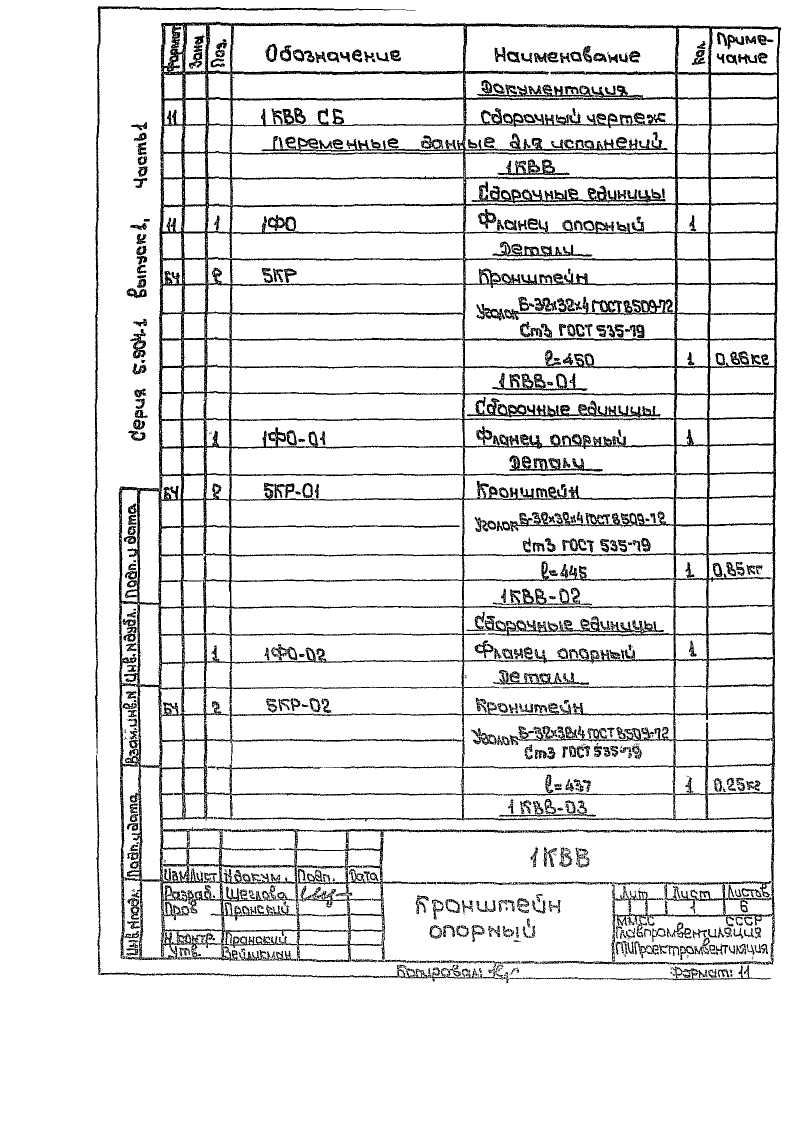 Формат Зона Поз. Обозначение Наименование Кол. Приме-
чание
Документация
11 1КВВ СБ Сборочный чертеж
Переменные данные для исполнений
1КВВ
Сборочные единицы
11 1 1ФО Фланец опорный 1
Детали
БЧ 2 5КР Кронштейн
Уголок Б-32х32х4 ГОСТ 8509-72
Ст3 ГОСТ 535-79
ℓ=450 1 0,86кг
1КВВ-01
Сборочные единицы
1 1ФО-01 Фланец опорный 1
Детали
БЧ 2 5КР-01 Кронштейн
Уголок Б-32х32х4 ГОСТ 8509-72
Ст3 ГОСТ 535-79
ℓ=445 1 0,85кг
1КВВ-02
Сборочные единицы
1 1ФО-02 Фланец опорный 1
Детали
БЧ 2 5КР-02 Кронштейн
Уголок Б-32х32х4 ГОСТ 8509-72
Ст3 ГОСТ 535-79
ℓ=437 1 0,25кг
1КВВ-03
Серия 5.904-1 выпуск 1, часть 1
Подп. и дата
Инв. N дубл.
Взам. инв. N
Подп. и дата
Инв. N подл.
1КВВ
Изм Лист N докум. Подп. Дата
Разраб. Щеглова
Пров Пронский
Н.контр. Пронский
Утв. Вейликман
Кронштейн
опорный
Лит Лист Листов
1 6
ММСС СССР
Главпромвентиляция
ГПИ Проектпромвентиляция
Копировал: Формат: 11